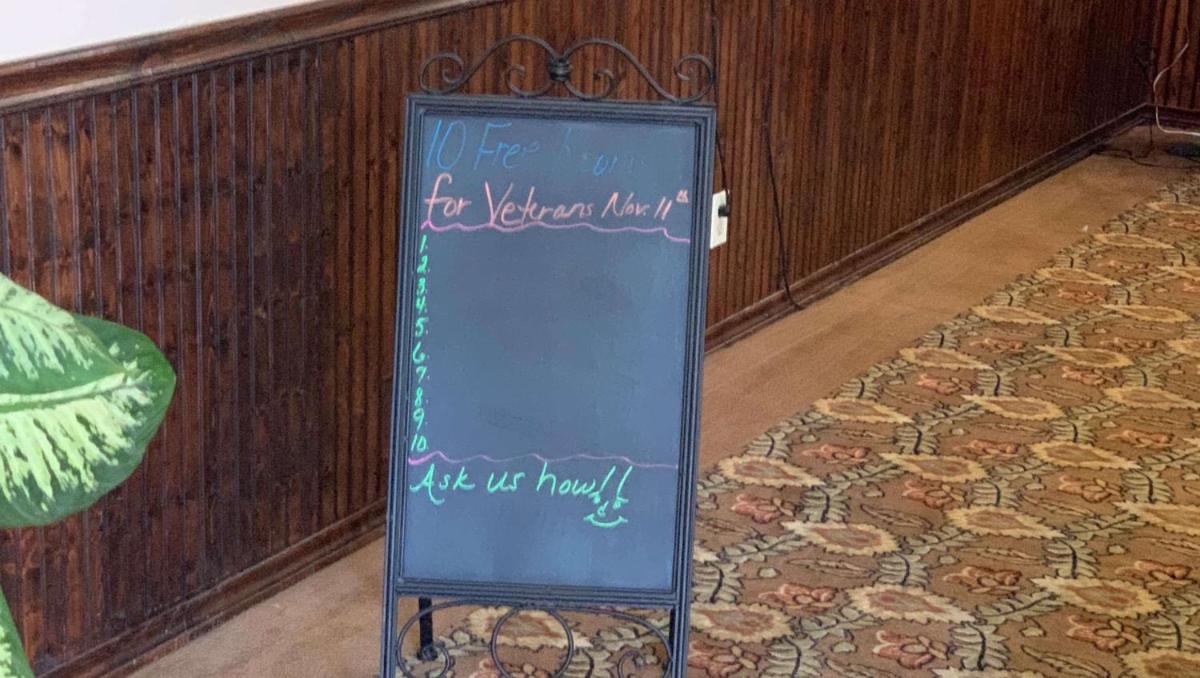 10 Free
for Veterans Nov. 11th
1.
2.
3.
4.
5.
6.
7.
8.
9.
10.
Ask us how!!